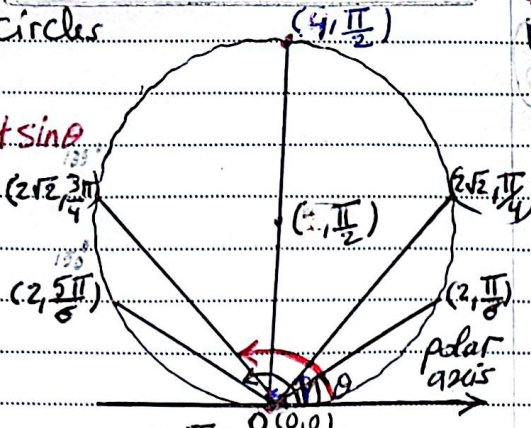 circles
(4, π/2)
sinθ
135°
(2√2, 3π/4)
(2√2, π/4)
(, π/2)
(2, 5π/6)
(2, π/6)
θ
polar
axis
O(0,0)